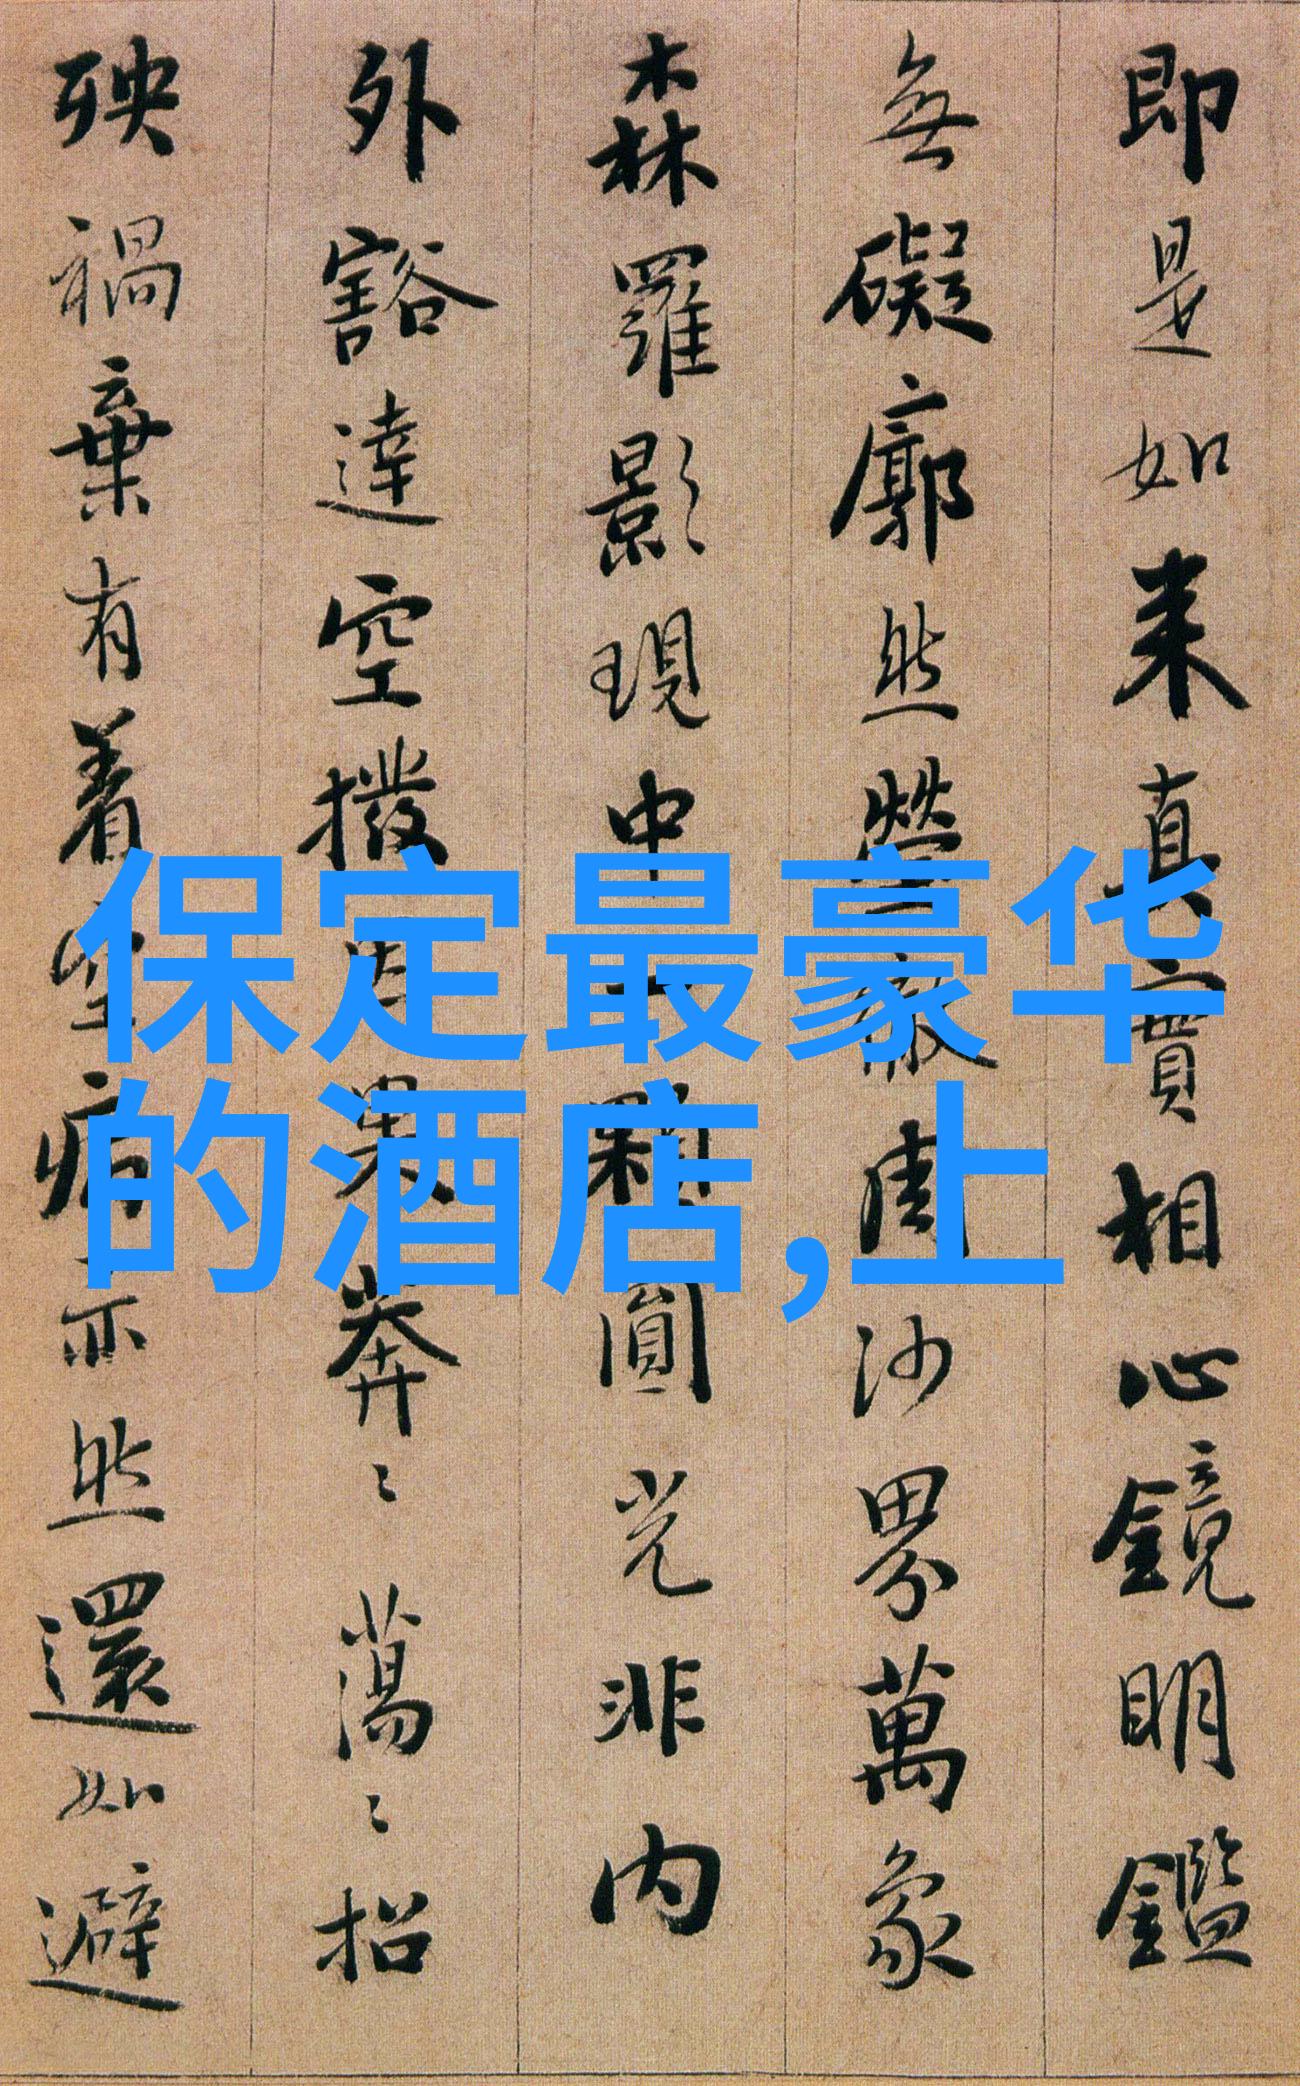 保定最豪华
的酒店,上
即是如来真實相心鏡明鑑
無礙廓然瑩徹周沙界萬象
森羅影現中一顆圓光非内
外豁達空撥因果莽〻蕩〻招
殃禍棄有着空病亦然還如避